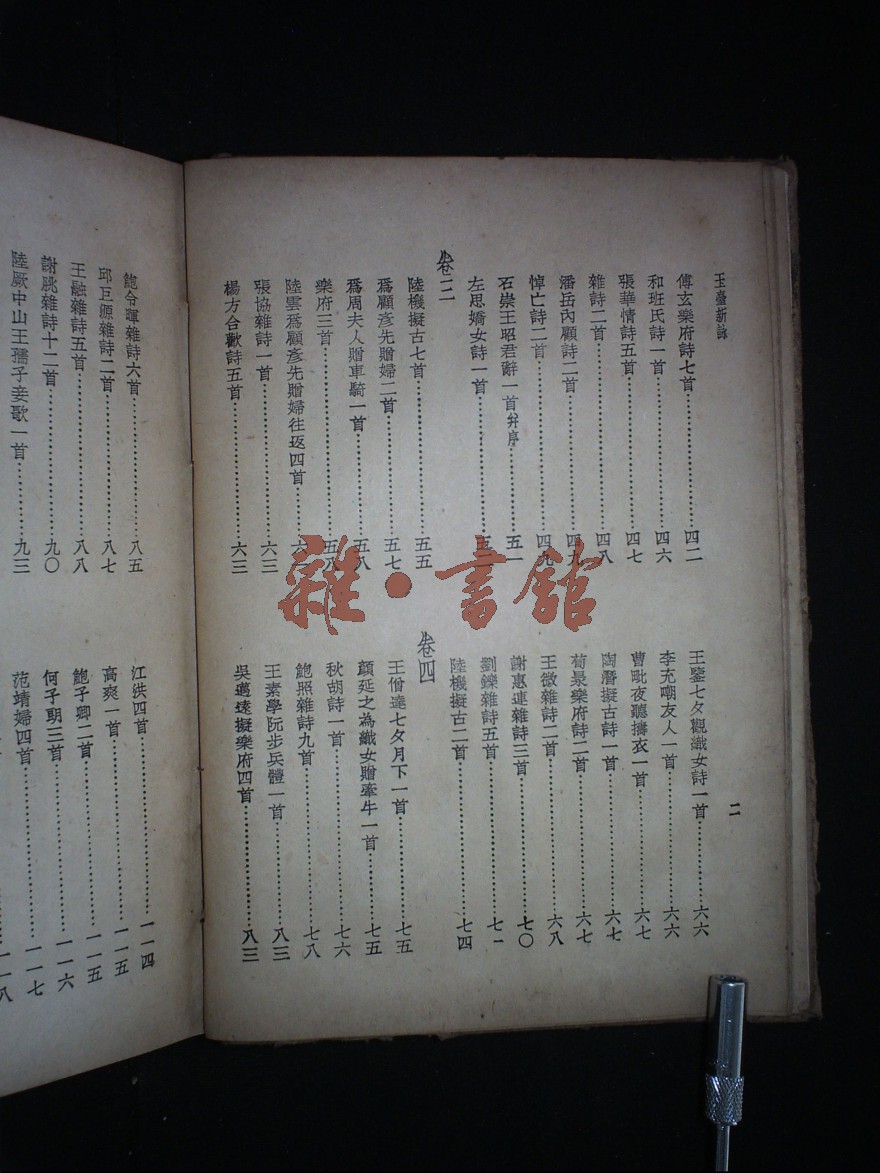 玉臺新詠
傅玄樂府詩七首……四二
和班氏詩一首……四六
張華情詩五首……四七
雜詩二首……四八
潘岳內顧詩二首……四九
悼亡詩二首……四九
石崇王昭君辭一首并序……五一
左思嬌女詩一首……五
卷三
陸機擬古七首……五五
爲顧彥先贈婦二首……五七
爲周夫人贈車騎一首……五八
樂府三首……五八
陸雲爲顧彥先贈婦往返四首……六
張協雜詩一首……六三
楊方合歡詩五首……六三
王鑒七夕觀織女詩一首……六六
李充嘲友人一首……六六
曹毗夜聽擣衣一首……六七
陶曆擬古詩一首……六七
荀㫤樂府詩二首……六七
王微雜詩二首……六八
謝惠連雜詩三首……七〇
劉鑠雜詩五首……七一
陸機擬古二首……七四
卷四
王僧達七夕月下一首……七五
顏延之為織女贈牽牛一首……七五
秋胡詩一首……七六
鮑照雜詩九首……七八
王素學阮步兵體一首……八三
吳邁遠擬樂府四首……八三
二
鮑令暉雜詩六首……八五
邱巨源雜詩二首……八七
王融雜詩五首……八八
謝朓雜詩十二首……九〇
陸厥中山王孺子妾歌一首……九三
江洪四首……一一四
高爽一首……一一五
鮑子卿二首……一一五
何子朗三首……一一六
范靖婦四首……一一七
一一八
雜·書館